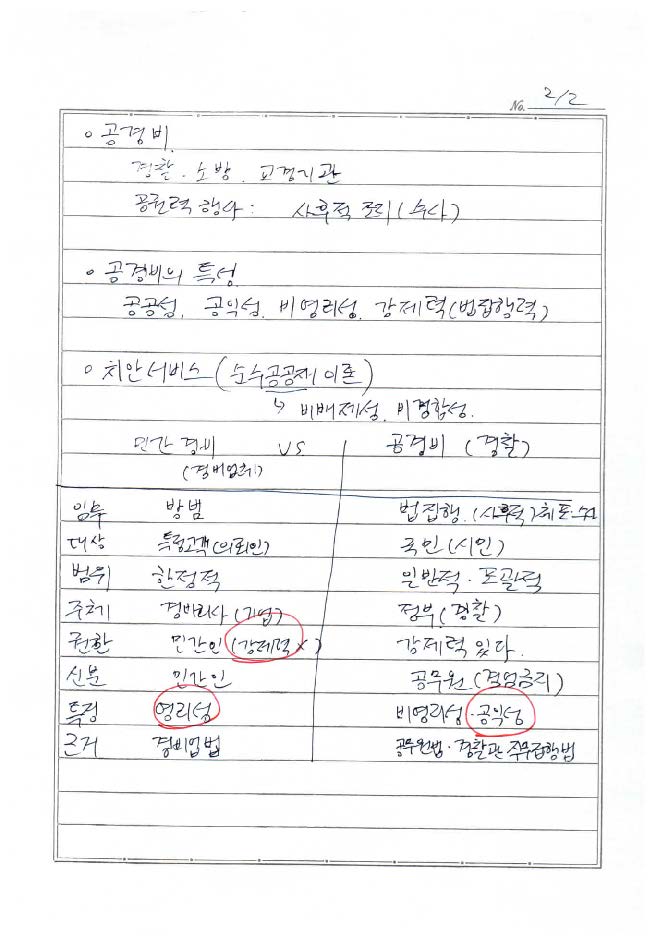 No. 2/2
◦ 공경비.
경찰. 소방. 교정기관
공권력 행사: 사후적 조치(수사)
◦ 공경비의 특성
공공성. 공익성. 비영리성. 강제력(법집행력)
◦ 치안서비스 (순수공공재 이론)
↳ 비배제성. 비경합성.
민간경비 VS 공경비 (경찰)
(경비업체)
임무 방범 법집행. (사후적) 체포·수사
대상 특정고객(의뢰인) 국민(시민)
범위 한정적 일반적·포괄적
주체 경비회사(기업) 정부(경찰)
권한 민간인(강제력 x) 강제력 있다.
신분 민간인 공무원(겸업금지)
특징 영리성 비영리성·공익성
근거 경비업법 공무원법·경찰관 직무집행법